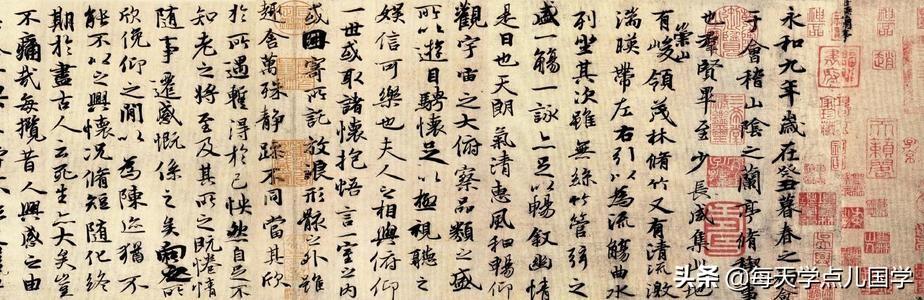 永和九年歲在癸丑暮春之初會
于會稽山陰之蘭亭脩稧事
也羣賢畢至少長咸集此地
有崇山峻領茂林脩竹又有清流激
湍暎帶左右引以為流觴曲水
列坐其次雖無絲竹管弦之
盛一觴一詠亦足以暢敘幽情
是日也天朗氣清惠風和暢仰
觀宇宙之大俯察品類之盛
所以遊目騁懷足以極視聽之
娛信可樂也夫人之相與俯仰
一世或取諸懷抱悟言一室之內
或因寄所託放浪形骸之外雖
趣舍萬殊靜躁不同當其欣
於所遇蹔得於己怏然自足不
知老之將至及其所之既惓情
隨事遷感慨係之矣向之所
欣俛仰之閒以為陳迹猶不
能不以之興懷況脩短隨化終
期於盡古人云死生亦大矣豈
不痛哉每攬昔人興感之由
头条 @每天学点儿国学